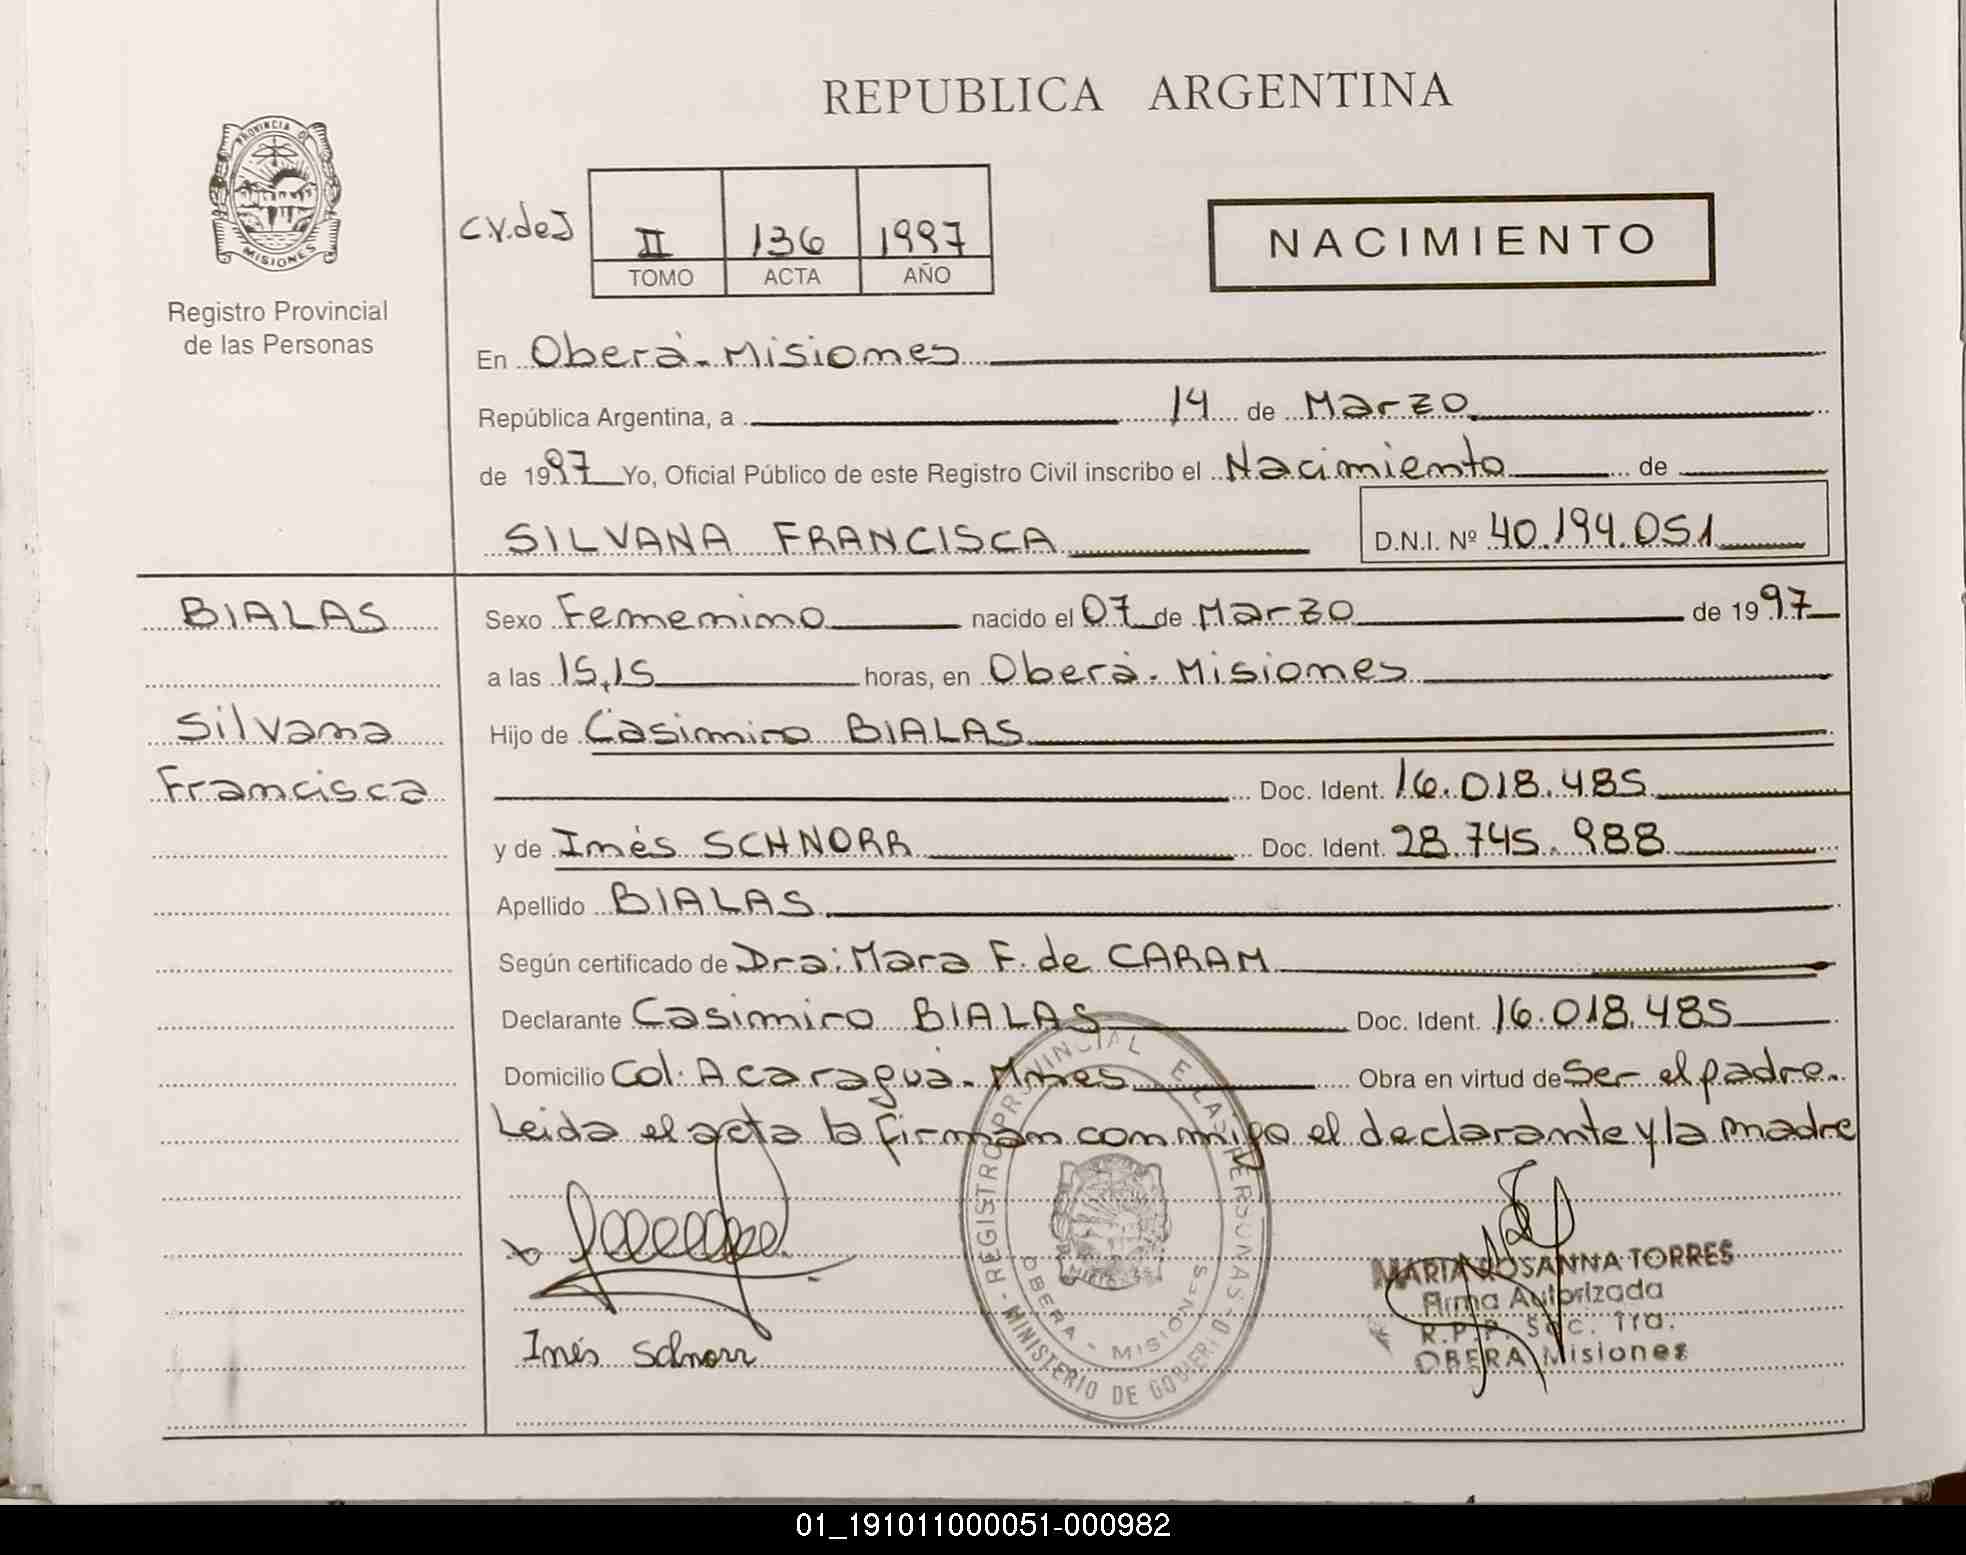 REPUBLICA ARGENTINA
PROVINCIA DE
MISIONES
Registro Provincial
de las Personas
C.V.deJ
II 136 1997
TOMO ACTA AÑO
NACIMIENTO
En Oberá-Misiones
República Argentina, a 14 de Marzo
de 1997 Yo, Oficial Público de este Registro Civil inscribo el Nacimiento de
SILVANA FRANCISCA D.N.I. Nº 40.194.051
BIALAS
Silvana
Francisca
Sexo Femenino nacido el 07 de Marzo de 1997
a las 15,15 horas, en Oberá-Misiones
Hijo de Casimiro BIALAS
Doc. Ident. 16.018.485
y de Inés SCHNORR Doc. Ident. 28.745.988
Apellido BIALAS
Según certificado de Dra: Mara F. de CARAM
Declarante Casimiro BIALAS Doc. Ident. 16.018.485
Domicilio Col. Acaraguá- Mnes Obra en virtud de Ser el padre.
Leida el acta la firman conmigo el declarante y la madre
REGISTRO PROVINCIAL DE LAS PERSONAS
MINISTERIO DE GOBIERNO
OBERA - MISIONES
Inés Schnorr
MARIA ROSANNA TORRES
Firma Autorizada
R.P.P. Sec. 1ra.
OBERA Misiones
01_191011000051-000982